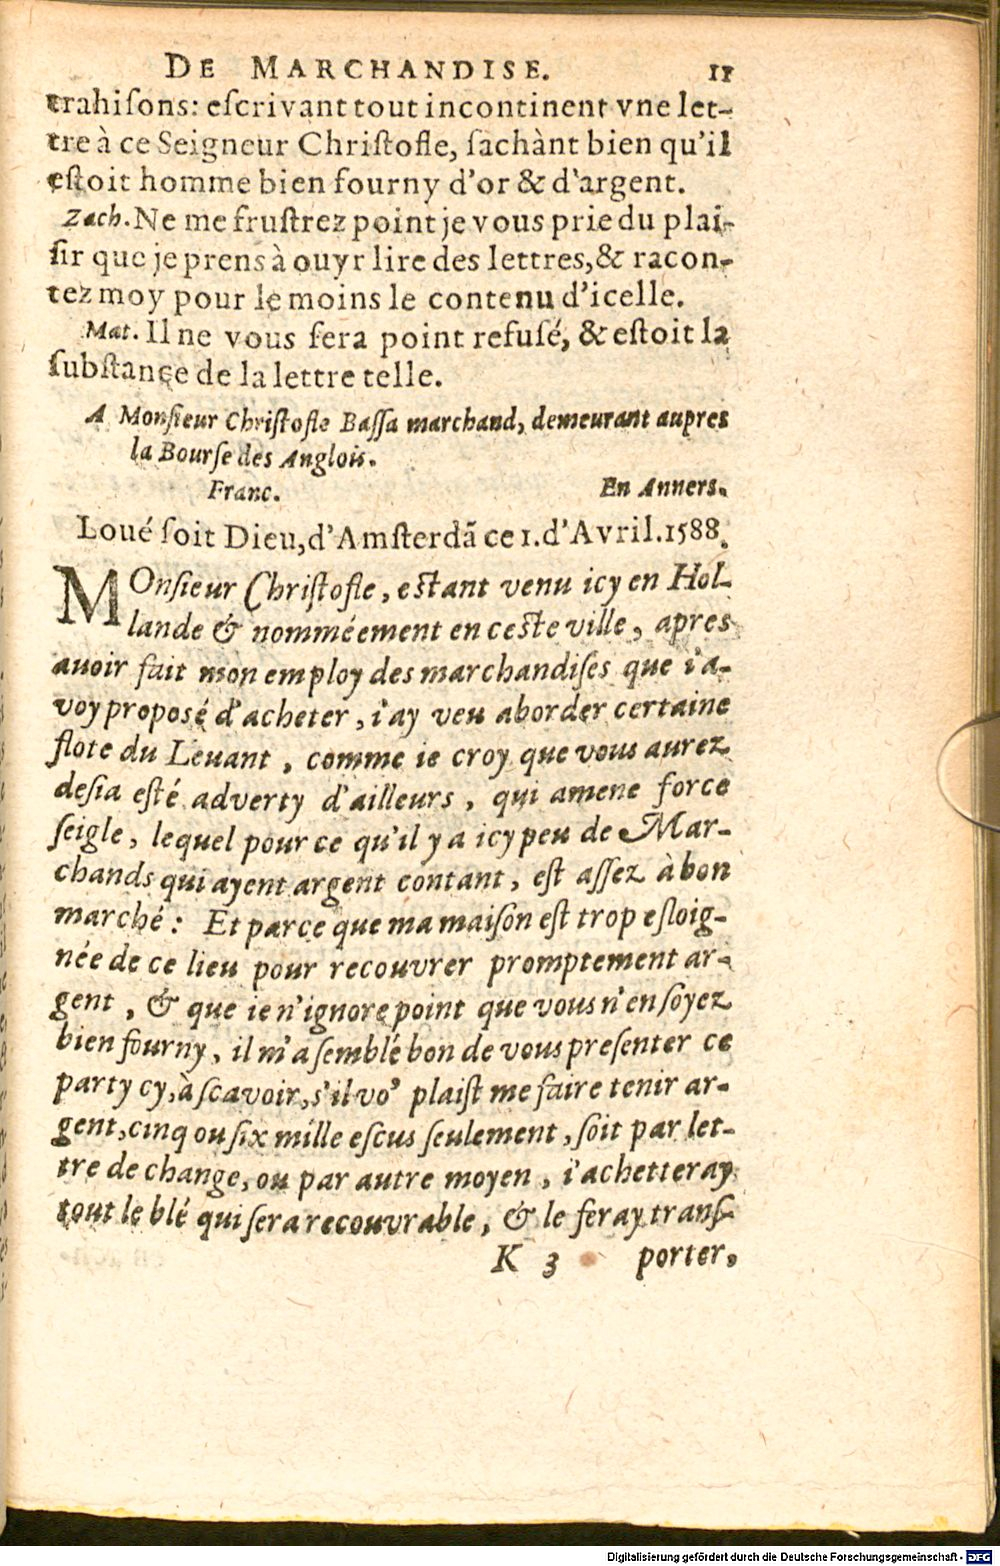 DE MARCHANDISE. 11
trahiſons: eſcrivant tout incontinent vne let-
tre à ce Seigneur Chriſtofle, ſachànt bien qu'il
eſtoit homme bien fourny d'or & d'argent.
Zach. Ne me fruſtrez point je vous prie du plai-
ſir que je prens à ouyr lire des lettres, & racon-
tez moy pour le moins le contenu d'icelle.
Mat. Il ne vous ſera point refuſé, & eſtoit la
ſubſtance de la lettre telle.
A Monſieur Chriſtofle Baſſa marchand, demeurant aupres
la Bourſe des Anglois.
Franc. En Anners.
Loué ſoit Dieu, d'Amſterdã ce 1. d'Avril. 1588.
MOnſieur Chriſtofle, eſtant venu icy en Hol-
lande & nomméement en ceſte ville, apres
auoir fait mon employ des marchandiſes que i'a-
voy proposé d'acheter, i'ay veu aborder certaine
flote du Leuant, comme ie croy que vous aurez
deſia eſté adverty d'ailleurs, qui amene force
ſeigle, lequel pour ce qu'il y a icy peu de Mar-
chands qui ayent argent contant, eſt aſſez à bon
marché: Et parce que ma maiſon eſt trop eſloig-
née de ce lieu pour recouvrer promptement ar-
gent, & que ie n'ignore point que vous n'en ſoyez
bien fourny, il m'a ſemblé bon de vous preſenter ce
party cy, à ſcavoir, s'il voꝰ plaiſt me faire tenir ar-
gent, cinq ou ſix mille eſcus ſeulement, ſoit par let-
tre de change, ou par autre moyen, i'achetteray
tout le blé qui ſera recouvrable, & le feray tranſ-
K 3 porter,
Digitalisierung gefördert durch die Deutsche Forschungsgemeinschaft - DFG